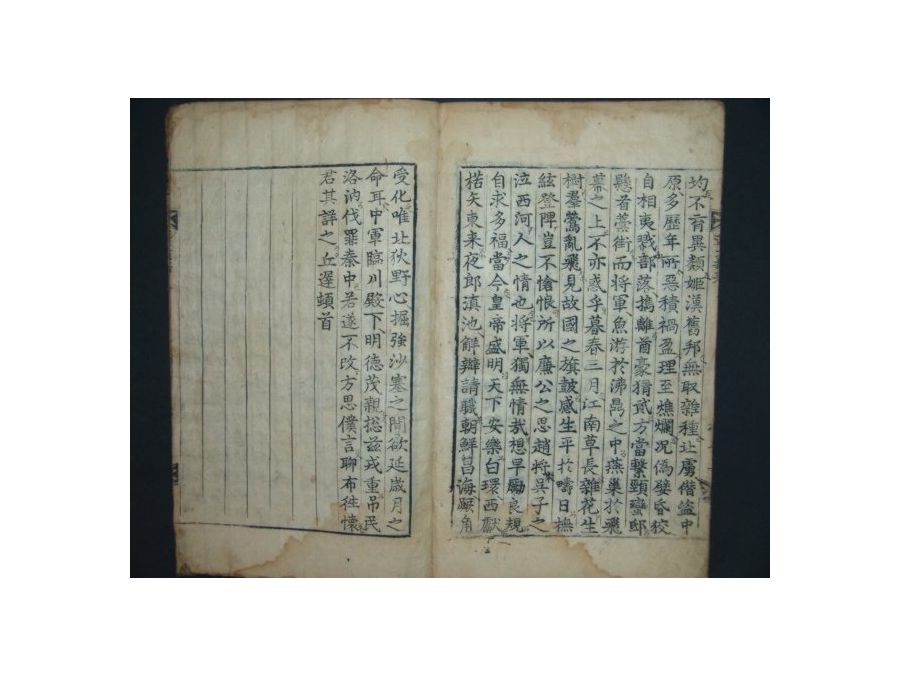 均不育異類姬漢舊邦無取雜種北虜僭盜中
原多歷年所惡積禍盈理至燋爛况偽孼昏狡
自相夷戮部落携離酋豪猜貳方當繫頸蠻邸
懸首藁街而將軍魚游於沸鼎之中燕巢於飛
幕之上不亦惑乎暮春三月江南草長雜花生
樹羣鶯亂飛見故國之旗鼓感生平於疇日撫
絃登陴豈不愴悢所以廉公之思趙將吳子之
泣西河人之情也將軍獨無情哉想早勵良規
自求多福當今皇帝盛明天下安樂白環西獻
楛矢東来夜郎滇池解辮請職朝鮮昌海蹶角
受化唯北狄野心掘強沙塞之間欲延歲月之
命耳中軍臨川殿下明德茂親揔茲戎重吊民
洛汭伐罪秦中若遂不改方思僕言聊布徃懷
君其詳之丘遲頓首